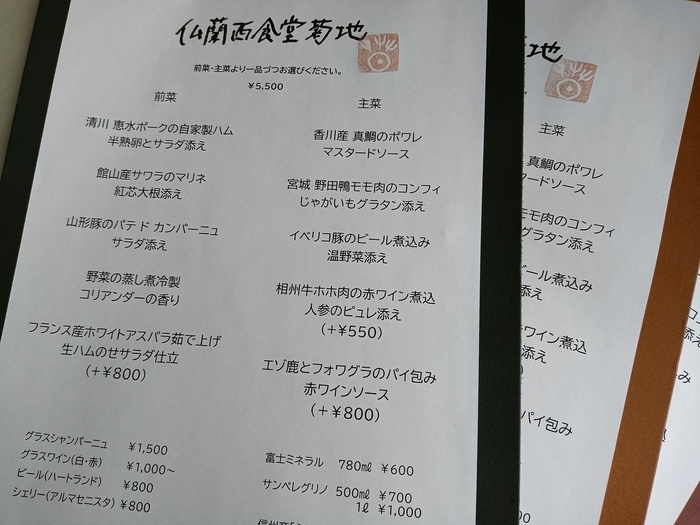 仏蘭西食堂菊地
前菜・主菜より一品づつお選びください。
￥5,500
前菜
清川 恵水ポークの自家製ハム
半熟卵とサラダ添え
館山産サワラのマリネ
紅芯大根添え
山形豚のパテ ド カンパーニュ
サラダ添え
野菜の蒸し煮冷製
コリアンダーの香り
フランス産ホワイトアスパラ茹で上げ
生ハムのせサラダ仕立
(+￥800)
主菜
香川産 真鯛のポワレ
マスタードソース
宮城 野田鴨モモ肉のコンフィ
じゃがいもグラタン添え
イベリコ豚のビール煮込み
温野菜添え
相州牛ホホ肉の赤ワイン煮込
人参のピュレ添え
(+￥550)
エゾ鹿とフォワグラのパイ包み
赤ワインソース
(+￥800)
グラスシャンパーニュ ￥1,500
グラスワイン(白・赤) ￥1,000～
ビール(ハートランド) ￥800
シェリー(アルマセニスタ) ￥800
富士ミネラル 780㎖ ￥600
サンペレグリノ 500㎖ ￥700
1ℓ ￥1,000
地
主菜
真鯛のポワレ
タードソース
モモ肉のコンフィ
グラタン添え
ビール煮込み
添え
ワイン煮込
添え
パイ包み